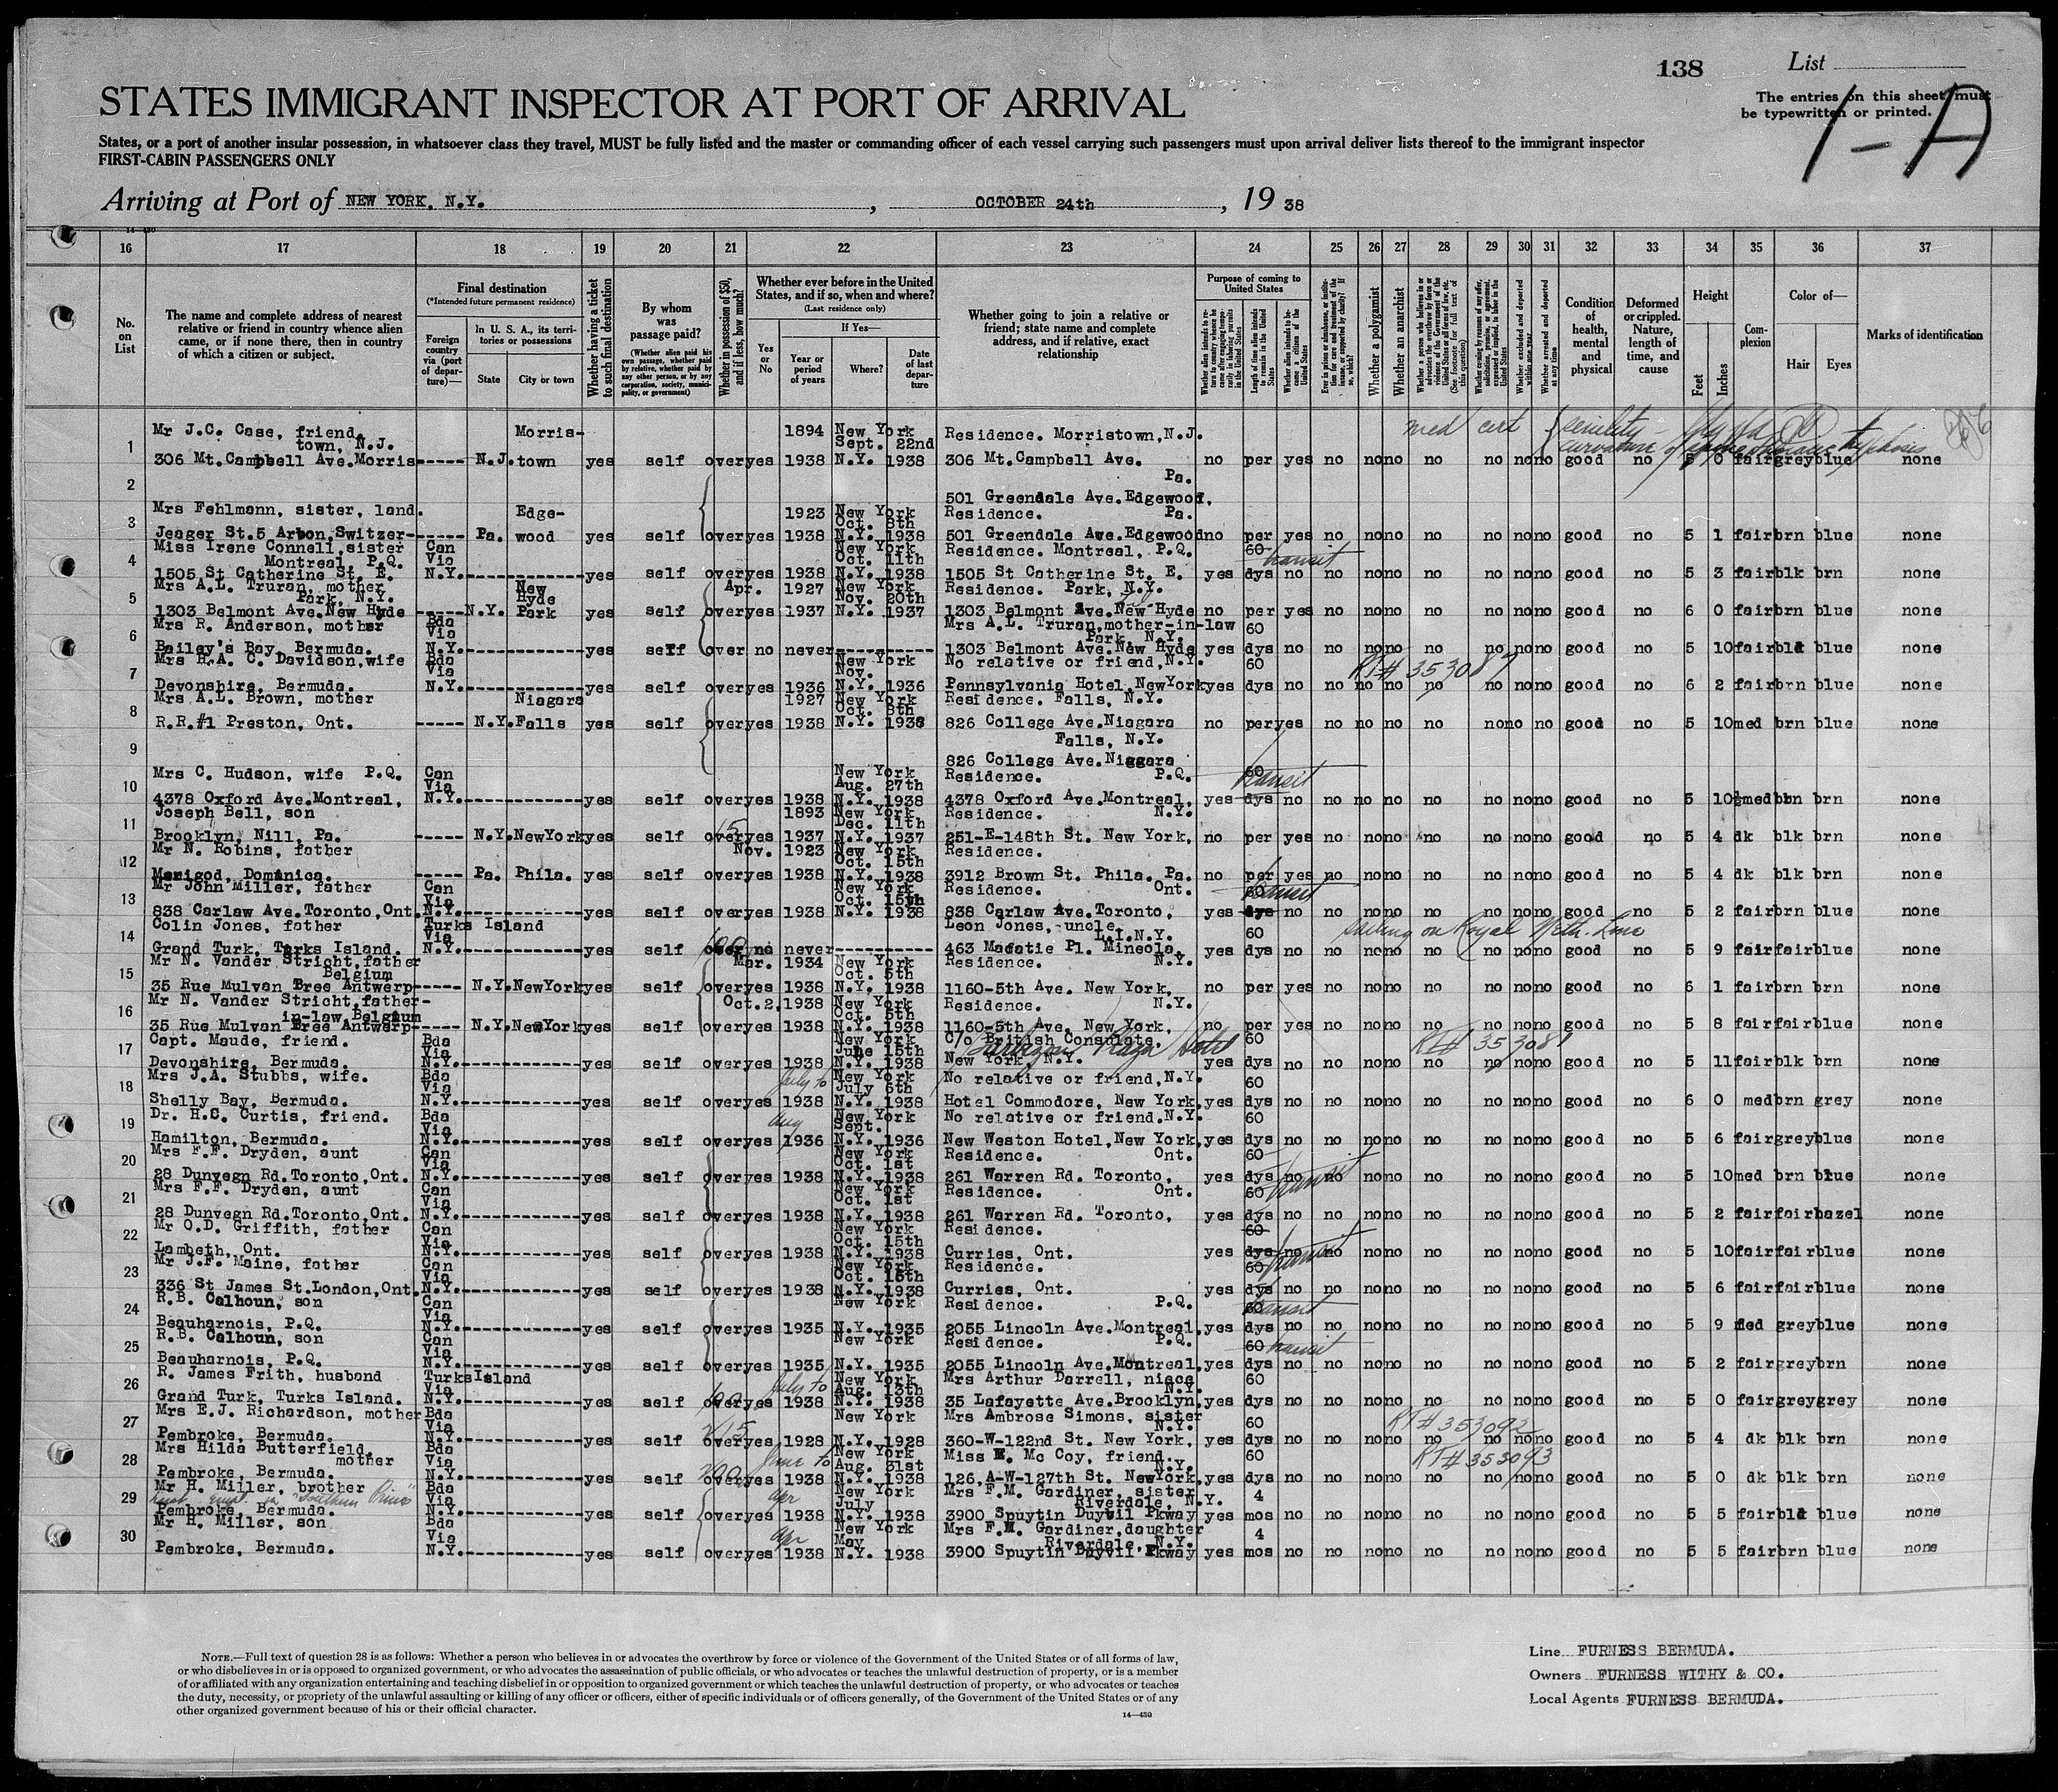 138
List
STATES IMMIGRANT INSPECTOR AT PORT OF ARRIVAL
The entries on this sheet must
be typewritten or printed.
1-A
States, or a port of another insular possession, in whatsoever class they travel, MUST be fully listed and the master or commanding officer of each vessel carrying such passengers must upon arrival deliver lists thereof to the immigrant inspector
FIRST-CABIN PASSENGERS ONLY
Arriving at Port of NEW YORK, N.Y. , OCTOBER 24th , 19 38
16 17 18 19 20 21 22 23 24 25 26 27 28 29 30 31 32 33 34 35 36 37
No. on List
The name and complete address of nearest relative or friend in country whence alien came, or if none there, then in country of which a citizen or subject.
Final destination
(*Intended future permanent residence)
Foreign country via (port of departure)—
In U. S. A., its territories or possessions
State
City or town
Whether having a ticket to such final destination
By whom was passage paid?
(Whether alien paid his own passage, whether paid by relative, whether paid by any other person, or by any corporation, society, municipality, or government)
Whether in possession of $50, and if less, how much?
Whether ever before in the United States, and if so, when and where?
(Last residence only)
Yes or No
If Yes—
Year or period of years
Where?
Date of last departure
Whether going to join a relative or friend; state name and complete address, and if relative, exact relationship
Purpose of coming to United States
Length of time alien intends to remain in the United States
Whether alien intends to become a citizen of the United States
Whether a polygamist
Whether an anarchist
Whether excluded and deported within one year
Whether arrested and deported at any time
Condition of health, mental and physical
Deformed or crippled. Nature, length of time, and cause
Height
Feet
Inches
Complexion
Color of—
Hair
Eyes
Marks of identification
med cert senility
curvature of
1 Mr J.C. Case, friend, Morris- 1894 New York
town, N.J. Sept. 22nd Residence. Morristown, N.J.
306 Mt. Campbell Ave. Morris----- N.J. town yes self over yes 1938 N.Y. 1938 306 Mt. Campbell Ave. no per yes no no no no no no no good no 5 0 fair grey blue none
2 Pa.
501 Greendale Ave. Edgewood,
3 Mrs Fehlmann, sister, land. Edge- 1923 New York Residence. Pa.
Oct. 8th
Jeager St. 5 Arbon, Switzer------ Pa. wood yes self over yes 1938 N.Y. 1938 501 Greendale Ave. Edgewood no per yes no no no no no no no good no 5 1 fair brn blue none
4 Miss Irene Connell, sister Can New York Residence. Montreal, P.Q. 60 transit
Montreal, P.Q. Via Oct. 11th
1505 St Catherine St. E. N.Y.------------yes self over yes 1938 N.Y. 1938 1505 St Catherine St. E. yes dys no no no no no no no no good no 5 3 fair blk brn none
5 Mrs A.L. Truran, mother New Apr. 1927 New York Residence. Park, N.Y.
Park, N.Y. Hyde Nov. 20th
1303 Belmont Ave. New Hyde -----N.Y. Park yes self over yes 1937 N.Y. 1937 1303 Belmont Ave. New Hyde no per yes no no no no no no no good no 6 0 fair brn blue none
6 Mrs R. Anderson, mother Bda Mrs A.L. Truran, mother-in-law 60
Via Park, N.Y.
Bailey's Bay, Bermuda. N.Y.------------yes self over no never---------- 1303 Belmont Ave. New Hyde yes dys no no no no no no no no good no 5 10 fair bld blue none
7 Mrs H.A. C. Davidson, wife Bda New York No relative or friend, N.Y. 60 RT# 353087
Via Nov.
Devonshire, Bermuda. N.Y.------------yes self over yes 1936 N.Y. 1936 Pennsylvania Hotel, New York yes dys no no no no no no no no good no 6 2 fair brn blue none
8 Mrs A.L. Brown, mother Niagara 1927 New York Residence. Falls, N.Y.
Oct. 8th
R.R.#1 Preston, Ont. ----- N.Y. Falls yes self over yes 1938 N.Y. 1938 826 College Ave. Niagara no per yes no no no no no no no good no 5 10 med brn blue none
9 Falls, N.Y.
826 College Ave. Niagara
10 Mrs C. Hudson, wife P.Q. Can New York Residence. P.Q. 60 transit
Via Aug. 27th
4378 Oxford Ave. Montreal, N.Y.------------yes self over yes 1938 N.Y. 1938 4378 Oxford Ave. Montreal, yes dys no no no no no no no no good no 5 10½ med brn brn none
11 Joseph Bell, son 1893 New York Residence. N.Y.
15 Dec. 11th
Brooklyn, Nill, Pa. ----- N.Y. New York yes self over yes 1937 N.Y. 1937 251-E-148th St. New York, no per yes no no no no no no no good no 5 4 dk blk brn none
12 Mr N. Robins, father Nov. 1923 New York Residence.
Oct. 15th
Marigod, Dominica. ----- Pa. Phila. yes self over yes 1938 N.Y. 1938 3912 Brown St. Phila. Pa. no per yes no no no no no no no good no 5 4 dk blk brn none
13 Mr John Miller, father Can New York Residence. Ont. 60 transit
Via Oct. 15th
838 Carlaw Ave. Toronto, Ont. N.Y.------------yes self over yes 1938 N.Y. 1938 838 Carlaw Ave. Toronto, yes dys no no no no no no no no good no 5 2 fair brn blue none
14 Colin Jones, father Turks Island Leon Jones, uncle, 60 sailing on Royal Neth. Line
Via 100 L.I. N.Y.
Grand Turk, Turks Island. N.Y.------------yes self over no never---------- 463 Macatie Pl. Mineola, yes dys no no no no no no no no good no 5 9 fair fair blue none
15 Mr N. Vander Stricht, father Mar. 1934 New York Residence. N.Y.
Belgium Oct. 5th
35 Rue Mulvan Bree Antwerp----- N.Y. New York yes self over yes 1938 N.Y. 1938 1160-5th Ave. New York, no per yes no no no no no no no good no 6 1 fair brn brn none
16 Mr N. Vander Stricht, father- Oct. 2, 1938 New York Residence. N.Y.
in-law, Belgium Oct. 5th
35 Rue Mulvan Bree Antwerp----- N.Y. New York yes self over yes 1938 N.Y. 1938 1160-5th Ave, New York, no per yes no no no no no no no good no 5 8 fair fair blue none
17 Capt. Maude, friend. Bda New York C/o British Consulate, 60 RT# 353081
Via June 15th Barbizon Plaza Hotel
Devonshire, Bermuda. N.Y.------------yes self over yes 1938 N.Y. 1938 New York, N.Y. yes dys no no no no no no no no good no 5 11 fair blk brn none
18 Mrs J.A. Stubbs, wife. Bda July to New York No relative or friend, N.Y. 60
Via July 6th
Shelly Bay, Bermuda. N.Y.------------yes self over yes 1938 N.Y. 1938 Hotel Commodore, New York, yes dys no no no no no no no no good no 6 0 med brn grey none
19 Dr. H.C. Curtis, friend. Bda Aug New York No relative or friend. N.Y. 60
Via Sept.
Hamilton, Bermuda. N.Y.------------yes self over yes 1936 N.Y. 1936 New Weston Hotel, New York, yes dys no no no no no no no no good no 5 6 fair grey blue none
20 Mrs F.F. Dryden, aunt Can New York Residence. Ont. 60 transit
Via Oct. 1st
28 Dunvegn Rd. Toronto, Ont. N.Y.------------yes self over yes 1938 N.Y. 1938 261 Warren Rd. Toronto, yes dys no no no no no no no no good no 5 10 med brn blue none
21 Mrs F.F. Dryden, aunt Can New York Residence. Ont. 60
Via Oct. 1st
28 Dunvegn Rd. Toronto, Ont. N.Y.------------yes self over yes 1938 N.Y. 1938 261 Warren Rd. Toronto, yes dys no no no no no no no no good no 5 2 fair fair hazel none
22 Mr O.D. Griffith, father Can New York Residence. 60 transit
Via Oct. 15th
Lambeth, Ont. N.Y.------------yes self over yes 1938 N.Y. 1938 Curries, Ont. yes dys no no no no no no no no good no 5 10 fair fair blue none
23 Mr J.F. Maine, father Can New York Residence. 60
Via Oct. 15th
336 St James St. London, Ont. N.Y.------------yes self over yes 1938 N.Y. 1938 Curries, Ont. yes dys no no no no no no no no good no 5 6 fair fair blue none
24 R.B. Calhoun, son Can New York Residence. P.Q. 60 transit
Via
Beauharnois, P.Q. N.Y.------------yes self over yes 1935 N.Y. 1935 2055 Lincoln Ave. Montreal, yes dys no no no no no no no no good no 5 9 med grey blue none
25 R.B. Calhoun, son Can New York Residence. P.Q. 60 transit
Via
Beauharnois, P.Q. N.Y.------------yes self over yes 1935 N.Y. 1935 2055 Lincoln Ave. Montreal, yes dys no no no no no no no no good no 5 2 fair grey brn none
26 R. James Frith, husband Turks Island July to New York Mrs Arthur Darrell, niece 60
Via 100 Aug. 13th N.Y.
Grand Turk, Turks Island. N.Y.------------yes self over yes 1938 N.Y. 1938 35 Lafayette Ave. Brooklyn, yes dys no no no no no no no no good no 5 0 fair grey grey none
27 Mrs E.J. Richardson, mother Bda New York Mrs Ambrose Simons, sister 60 RT# 353092
Via N.Y.
Pembroke, Bermuda. N.Y.------------yes self over yes 1928 N.Y. 1928 360-W-122nd St. New York, yes dys no no no no no no no no good no 5 4 dk blk brn none
28 Mrs Hilda Butterfield, Bda June to New York Miss E. Mc Coy, friend. 60 RT# 353093
mother Via 200 Aug. 31st N.Y.
Pembroke, Bermuda. N.Y.------------yes self over yes 1938 N.Y. 1938 126 A-W-127th St. New York, yes dys no no no no no no no no good no 5 0 dk blk brn none
29 Mr H. Miller, brother Bda Apr New York Mrs F.M. Gardiner, sister 4
Via July Riverdale, N.Y.
Pembroke, Bermuda. N.Y.------------yes self over yes 1938 N.Y. 1938 3900 Spuytin Duyvil Pkway yes mos no no no no no no no no good no 5 5 fair bld blue none
30 Mr H. Miller, son Bda Apr New York Mrs F.M. Gardiner, daughter 4
Via May Riverdale, N.Y.
Pembroke, Bermuda. N.Y.------------yes self over yes 1938 N.Y. 1938 3900 Spuytin Duyvil Pkway yes mos no no no no no no no no good no 5 5 fair brn blue none
NOTE.—Full text of question 28 is as follows: Whether a person who believes in or advocates the overthrow by force or violence of the Government of the United States or of all forms of law,
or who disbelieves in or is opposed to organized government, or who advocates the assassination of public officials, or who advocates or teaches the unlawful destruction of property, or is a member
of or affiliated with any organization entertaining and teaching disbelief in or opposition to organized government or which teaches the unlawful destruction of property, or who advocates or teaches
the duty, necessity, or propriety of the unlawful assaulting or killing of any officer or officers, either of specific individuals or of officers generally, of the Government of the United States or of any
other organized government because of his or their official character.
14—430
Line FURNESS BERMUDA.
Owners FURNESS WITHY & CO.
Local Agents FURNESS BERMUDA.